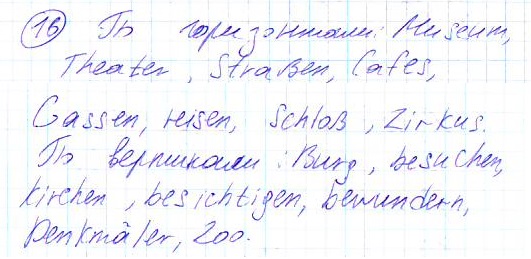 16 По горизонтали: Museum,
Theater, Straßen, Cafes,
Gassen, reisen, Schloß, Zirkus.
По вертикали: Burg, besuchen,
Kirchen, besichtigen, bewundern,
Denkmäler, Zoo.